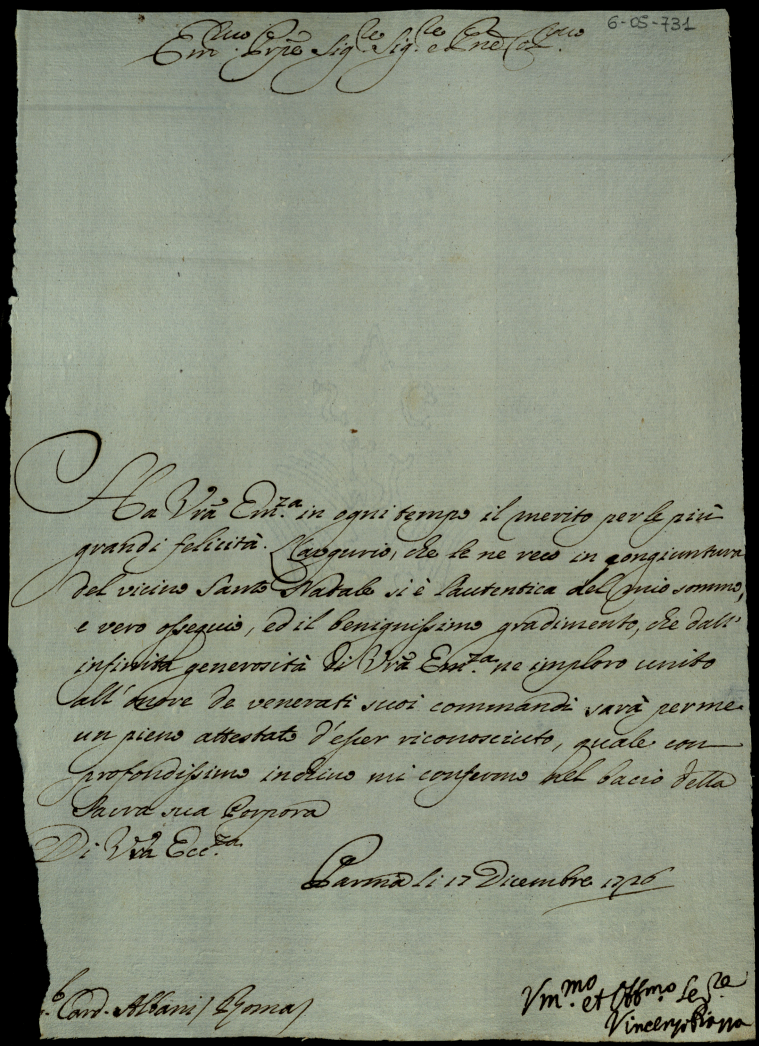 6-05-731
Em.mo Prpe Sig.re Sig.re e Prne Col.mo
Ha Vrã Em.za in ogni tempo il merito per le più
grandi felicità. L'augurio, che le ne reco in congiuntura
del vicino Santo Natale si è l'autentica del mio sommo,
e vero ossequio, ed il benignissimo gradimento, che dall'
infinita generosità di Vrã Em.za ne imploro unito
all'onore de venerati suoi commandi sarà per me
un pieno attestato d'esser riconosciuto, quale con
profondissimo inchino mi confermo nel bacio della
Sacra sua Porpora
Di Vrã Ecc.za
Parma li 17 Dicembre 1726
Card. Albani / Roma /
Vm.mo et Obb.mo Se.re
Vincenzo Piazza